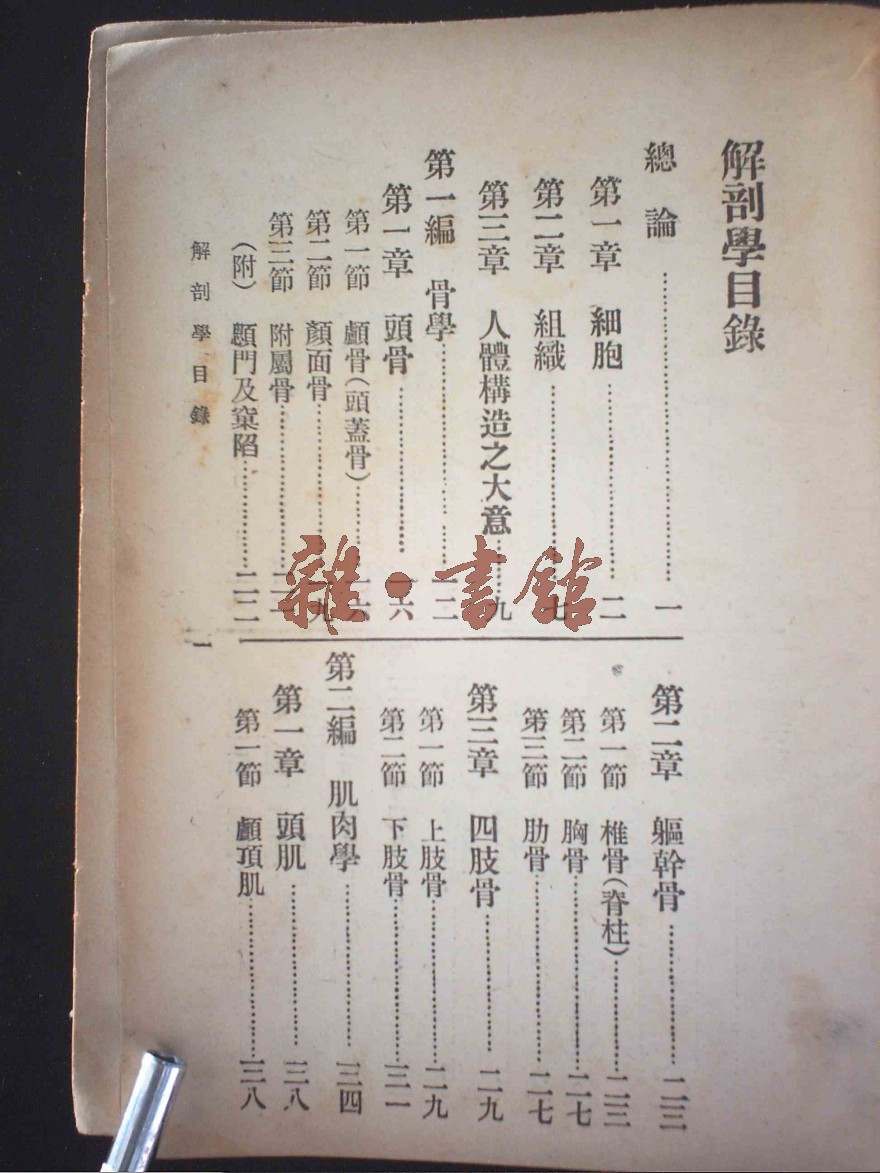 解剖學目錄
總論…………一
第一章 細胞…………二
第二章 組織…………七
第三章 人體構造之大意…………九
第一編 骨學…………一二
第一章 頭骨…………一六
第一節 顱骨(頭蓋骨)…………一六
第二節 顏面骨…………一九
第三節 附屬骨…………二一
(附) 顖門及窠陷…………二二
解剖學目錄 一
第二章 軀幹骨…………二三
第一節 椎骨(脊柱)…………二三
第二節 胸骨…………二七
第三節 肋骨…………二七
第三章 四肢骨…………二九
第一節 上肢骨…………二九
第二節 下肢骨…………三一
第二編 肌肉學…………三四
第一章 頭肌…………三八
第一節 顱頂肌…………三八
雜·書館